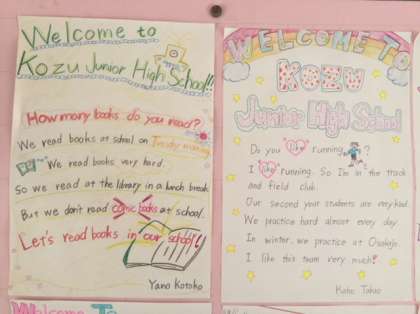 Welcome to
Kozu Junior High School!!
How many books do you read?
We read books at school on Tuesday morning.
We read books very hard.
So we read at the library in a lunch break.
But we don't read comic books at school.
Let's read books in our school!
Yano Kotoko
WELCOME TO
KOZU
Junior High School
Do you like running?
I like running. So I'm in the track
and field club.
Our second year students are very kind.
We practice hard almost every day.
In winter, we practice at Osakajo.
I like this team very much!
Kaho Takao
Welcome To